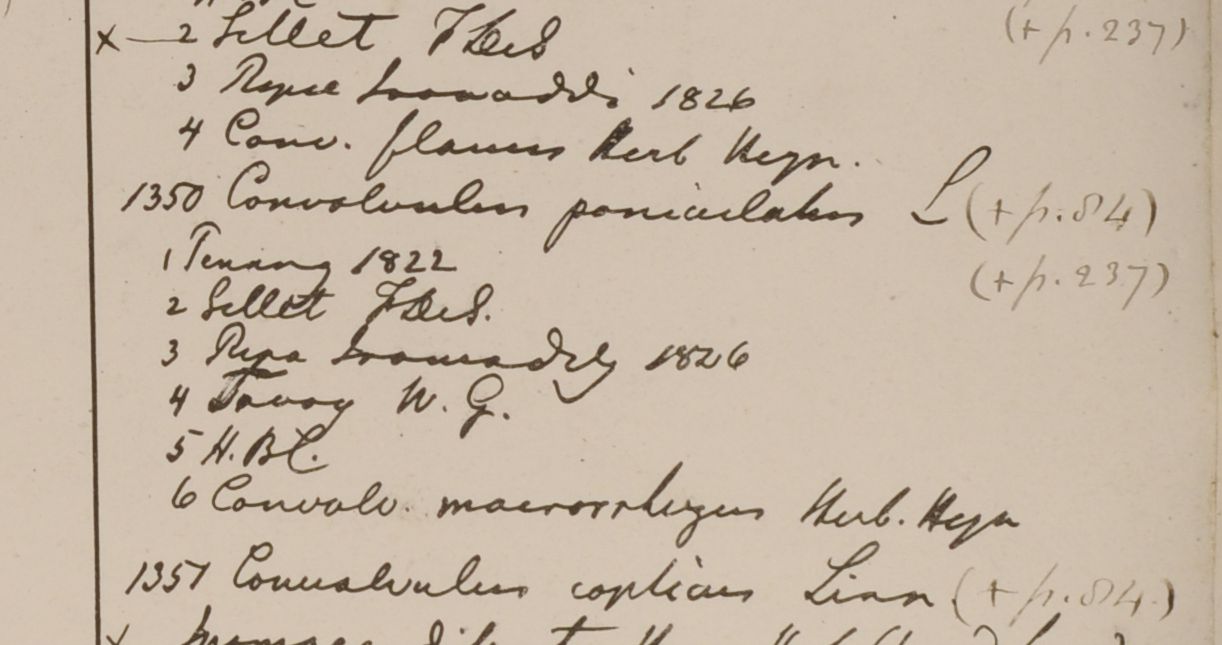 x — 2 Sillet F De S (+ p. 237)
3 Ripae Irawaddi 1826
4 Conv. flavus Herb Heyn.
1350 Convolvulus paniculatus L (+ p. 84)
1 Penang 1822 (+ p. 237)
2 Sillet F De S.
3 Ripa Irawaddy 1826
4 Tavoy W. G.
5 H. B C.
6 Convolv. macrorrhizus Herb. Heyn
1351 Convolvulus copticus Linn (+ p. 84.)
x